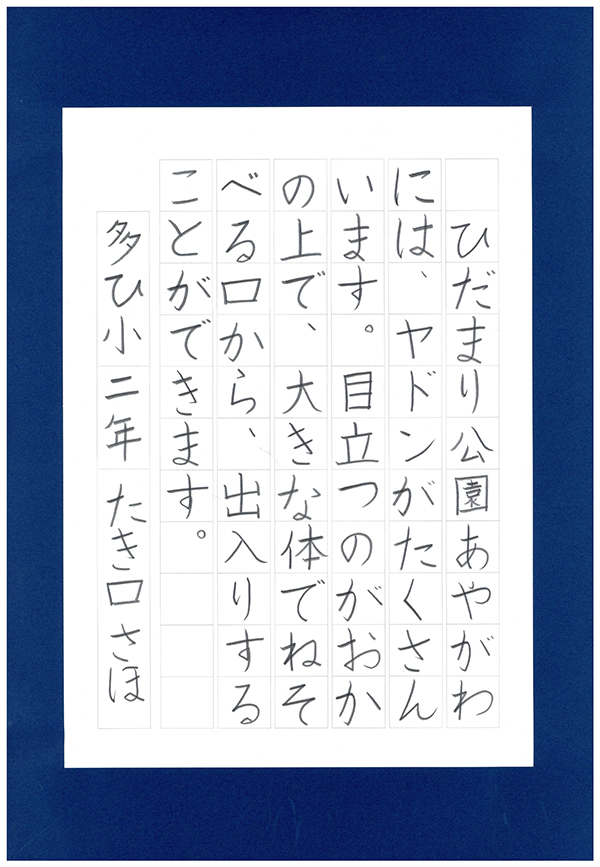 ひだまり公園あやがわ
には、ヤドンがたくさん
います。目立つのがおか
の上で、大きな体でねそ
べる口から、出入りする
ことができます。
多ひ小 二年 たき口さほ